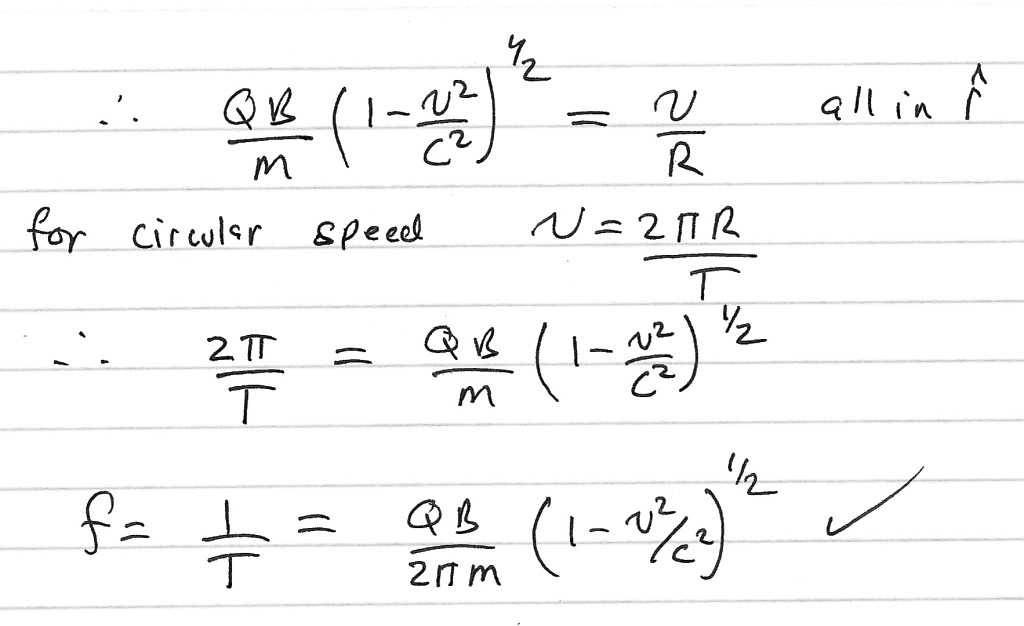 ∴ QB/m (1 - v²/c²)^1/2 = v/R all in r̂
for circular speed v = 2πR/T
∴ 2π/T = QB/m (1 - v²/c²)^1/2
f = 1/T = QB/2πm (1 - v²/c²)^1/2 ✓